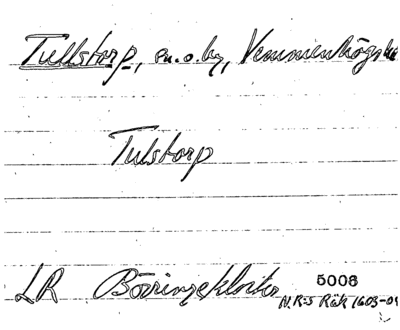 Tullstorp, sn. o. by, Vemmenhögs
Tulstorp
LR Börringekloster 5006
N.R:s Räk 1603-04